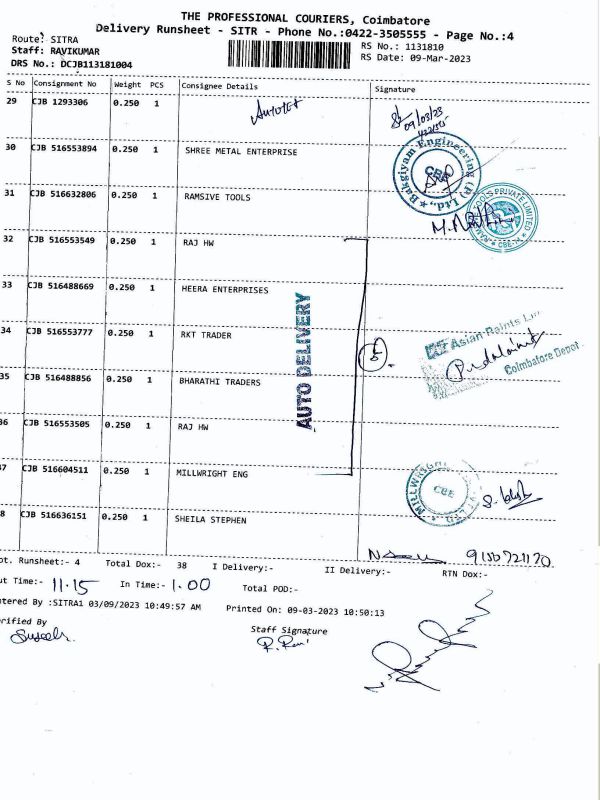 THE PROFESSIONAL COURIERS, Coimbatore
Delivery Runsheet - SITR - Phone No.:0422-3505555 - Page No.:4
Route: SITRA
RS No.: 1131810
Staff: RAVIKUMAR
RS Date: 09-Mar-2023
DRS No.: DCJB113181004
S No Consignment No Weight PCS Consignee Details Signature
29 CJB 1293306 0.250 1
09/03/23
30 CJB 516553894 0.250 1 SHREE METAL ENTERPRISE
Bakgiyam Engineering (P) Ltd., CBE
31 CJB 516632806 0.250 1 RAMSIVE TOOLS
TOOLS PRIVATE LIMITED CBE-14
32 CJB 516553549 0.250 1 RAJ HW
33 CJB 516488669 0.250 1 HEERA ENTERPRISES
AUTO DELIVERY
34 CJB 516553777 0.250 1 RKT TRADER
5
Asian Paints
Coimbatore Depot
35 CJB 516488856 0.250 1 BHARATHI TRADERS
36 CJB 516553505 0.250 1 RAJ HW
37 CJB 516604511 0.250 1 MILLWRIGHT ENG
MILLWRIGHT CBE
38 CJB 516636151 0.250 1 SHEILA STEPHEN
ot. Runsheet:- 4 Total Dox:- 38 I Delivery:- II Delivery:- RTN Dox:-
ut Time:- 11.15 In Time:- 1.00 Total POD:-
ntered By :SITRA1 03/09/2023 10:49:57 AM Printed On: 09-03-2023 10:50:13
erified By
Staff Signature